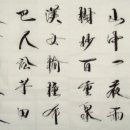 山中一夜雨
樹杪百重泉
漢女輸橦布
巴人訟芋田